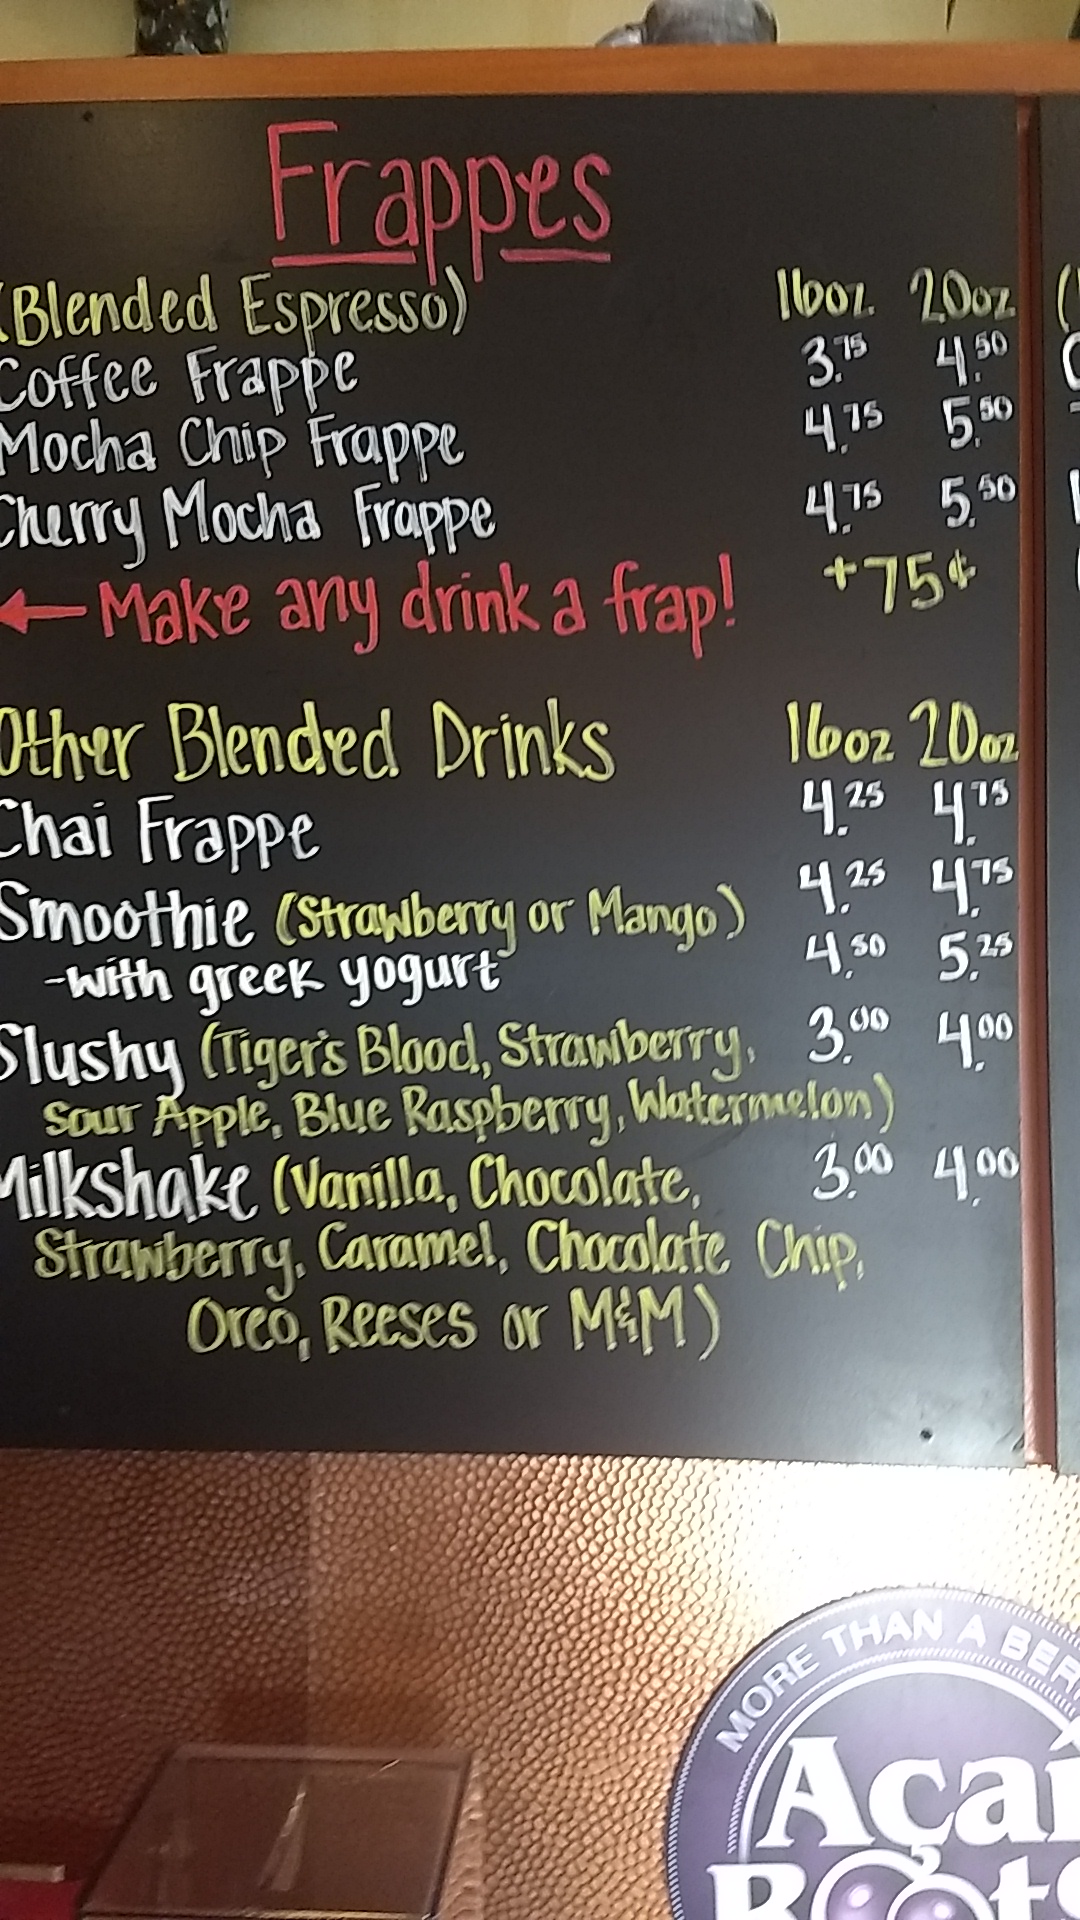 Frappes
(Blended Espresso) 16oz. 20oz
Coffee Frappe 3.75 4.50
Mocha Chip Frappe 4.75 5.50
Cherry Mocha Frappe 4.75 5.50
← Make any drink a frap! +75¢
Other Blended Drinks 16oz 20oz
Chai Frappe 4.25 4.75
Smoothie (Strawberry or Mango) 4.25 4.75
-with greek yogurt 4.50 5.25
Slushy (Tiger's Blood, Strawberry, 3.00 4.00
Sour Apple, Blue Raspberry, Watermelon)
Milkshake (Vanilla, Chocolate, 3.00 4.00
Strawberry, Caramel, Chocolate Chip,
Oreo, Reeses or M&M)
MORE THAN A BER
Açaí
Roots